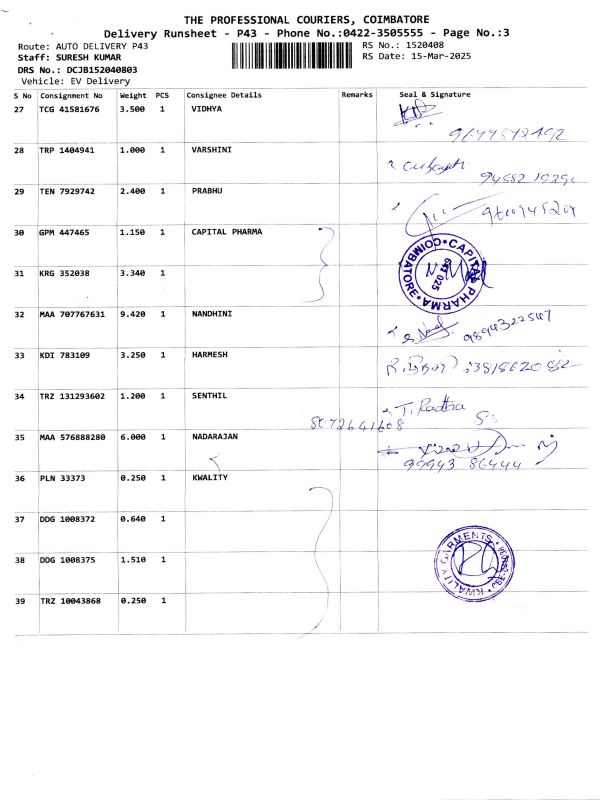 THE PROFESSIONAL COURIERS, COIMBATORE
Delivery Runsheet - P43 - Phone No.:0422-3505555 - Page No.:3
Route: AUTO DELIVERY P43 RS No.: 1520408
Staff: SURESH KUMAR RS Date: 15-Mar-2025
DRS No.: DCJB152040803
Vehicle: EV Delivery
S No Consignment No Weight PCS Consignee Details Remarks Seal & Signature
27 TCG 41581676 3.500 1 VIDHYA
28 TRP 1404941 1.000 1 VARSHINI
29 TEN 7929742 2.400 1 PRABHU
30 GPM 447465 1.150 1 CAPITAL PHARMA
CAPITAL PHARMA COIMBATORE 641 025
31 KRG 352038 3.340 1
32 MAA 707767631 9.420 1 NANDHINI
9894322547
33 KDI 783109 3.250 1 HARMESH
34 TRZ 131293602 1.200 1 SENTHIL
T. Radha
8072641608
35 MAA 576888280 6.000 1 NADARAJAN
99943 86444
36 PLN 33373 0.250 1 KWALITY
37 DDG 1008372 0.640 1
KWALITY GARMENTS
38 DDG 1008375 1.510 1
39 TRZ 10043868 0.250 1